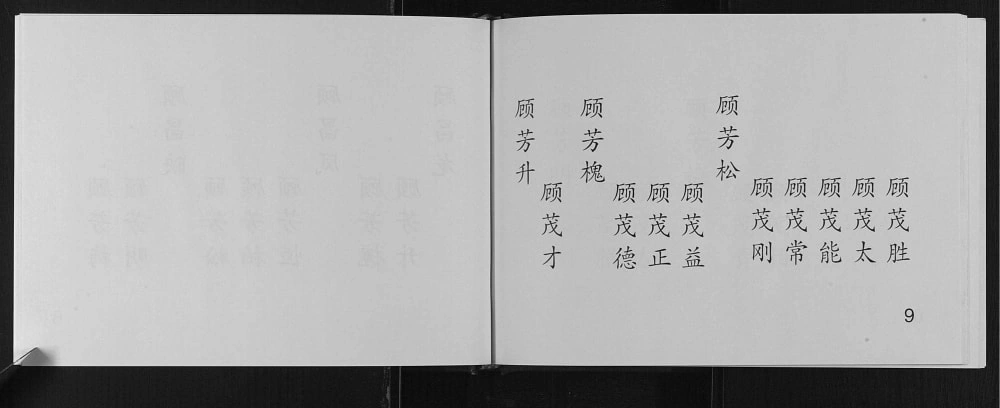 顾芳升
顾茂才
顾芳槐
顾茂德
顾茂正
顾茂益
顾芳松
顾茂刚
顾茂常
顾茂能
顾茂太
顾茂胜
9